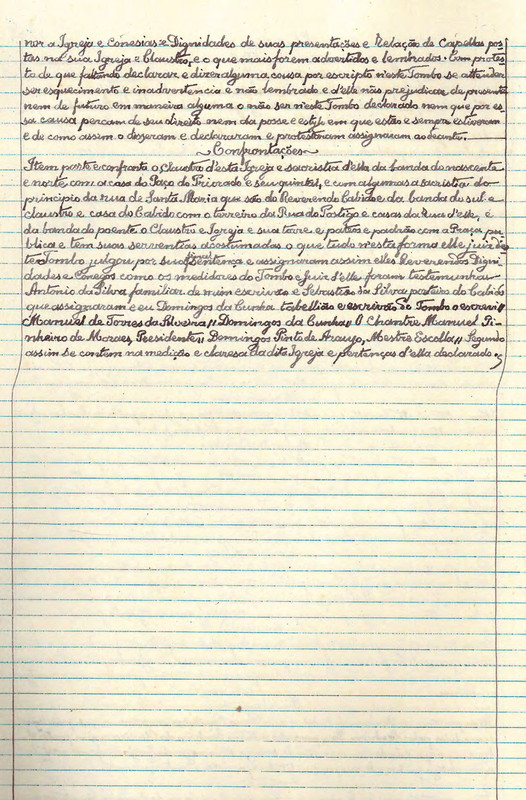 nor a Igreja e Conesias e Dignidades de suas presentações e Relação de Capellas pos-
tas na sua Igreja e Claustro, e o que mais forem advertidos e lembrados. Com protes-
to de que faltando declarar e dizer alguma cousa por escripto n'este Tombo se attender
ser esquecimento e inadvertencia e não lembrado e d'elle não prejudicar de presente
nem de futuro em maneira alguma o não ser n'este Tombo declarado nem que por es-
sa causa percam de seu direito nem da posse e estylo em que estão e sempre estiveram
e de como assim o disseram e declararam e protestaram assignaram ao deante.
~Confrontações~
Item parte e confronta o Claustro d'esta Igreja e sacristia d'ella da banda do nascente
e norte com a casa do Paço do Priorado e seu quintal, e com algumas a sacristia do
principio da rua de Santa Maria que são do Reverendo Cabido e da banda do sul e
claustro e casa do Cabido com o terreiro da Rua do Postigo e casas da Rua d'elle, é
da banda do poente o Claustro e Igreja e sua torre e pateo e padrão com a Praça pu-
blica e tem suas serventias acostumadas o que tudo n'esta forma elle juiz d'es-
te Tombo julgou por sua final Sentença e assignaram assim elles Reverendos Digni-
dades e Conegos como os medidores do Tombo e Juiz d'elle foram testemunhas
Antonio da Silva familiar de mim escrivão e Sebastião da Silva porteiro do Cabido
que assignaram e eu Domingos da Cunha tabellião e escrivão do Tombo o escrevi //
Manuel de Torres da Silveira // Domingos da Cunha // O Chantre Manuel Pi-
nheiro de Moraes, Presidente // Domingos Pinto de Araujo, Mestre Escolla // Segundo
assim se contem na medição e claresa da dita Igreja e pertenças d'ella declarado